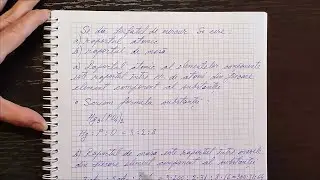 Se dă fosfatul de mercur. Se cere:
a) raportul atomic
b) raportul de masă
a) Raportul atomic al elementelor componente
este raportul între nr. de atomi din fiecare
element component al substanței
• Scriem formula substanței
Hg₃(PO₄)₂
Hg : P : O = 3:2:8
b) Raportul de masă este raportul între masele
din fiecare element component al substanței